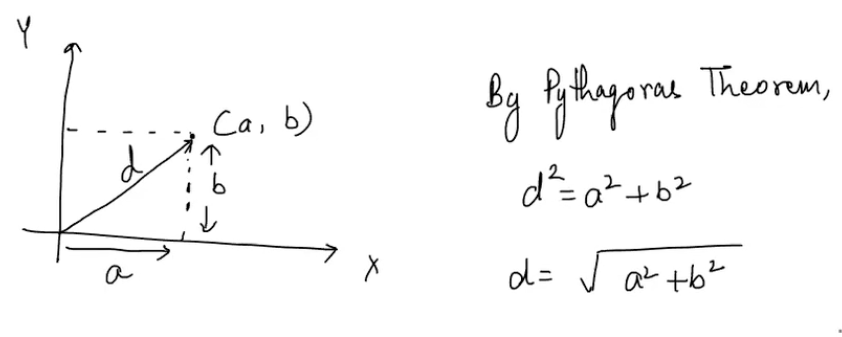 Y
(a, b)
d
b
a
X
By Pythagoras Theorem,
d²=a²+b²
d= √a²+b²